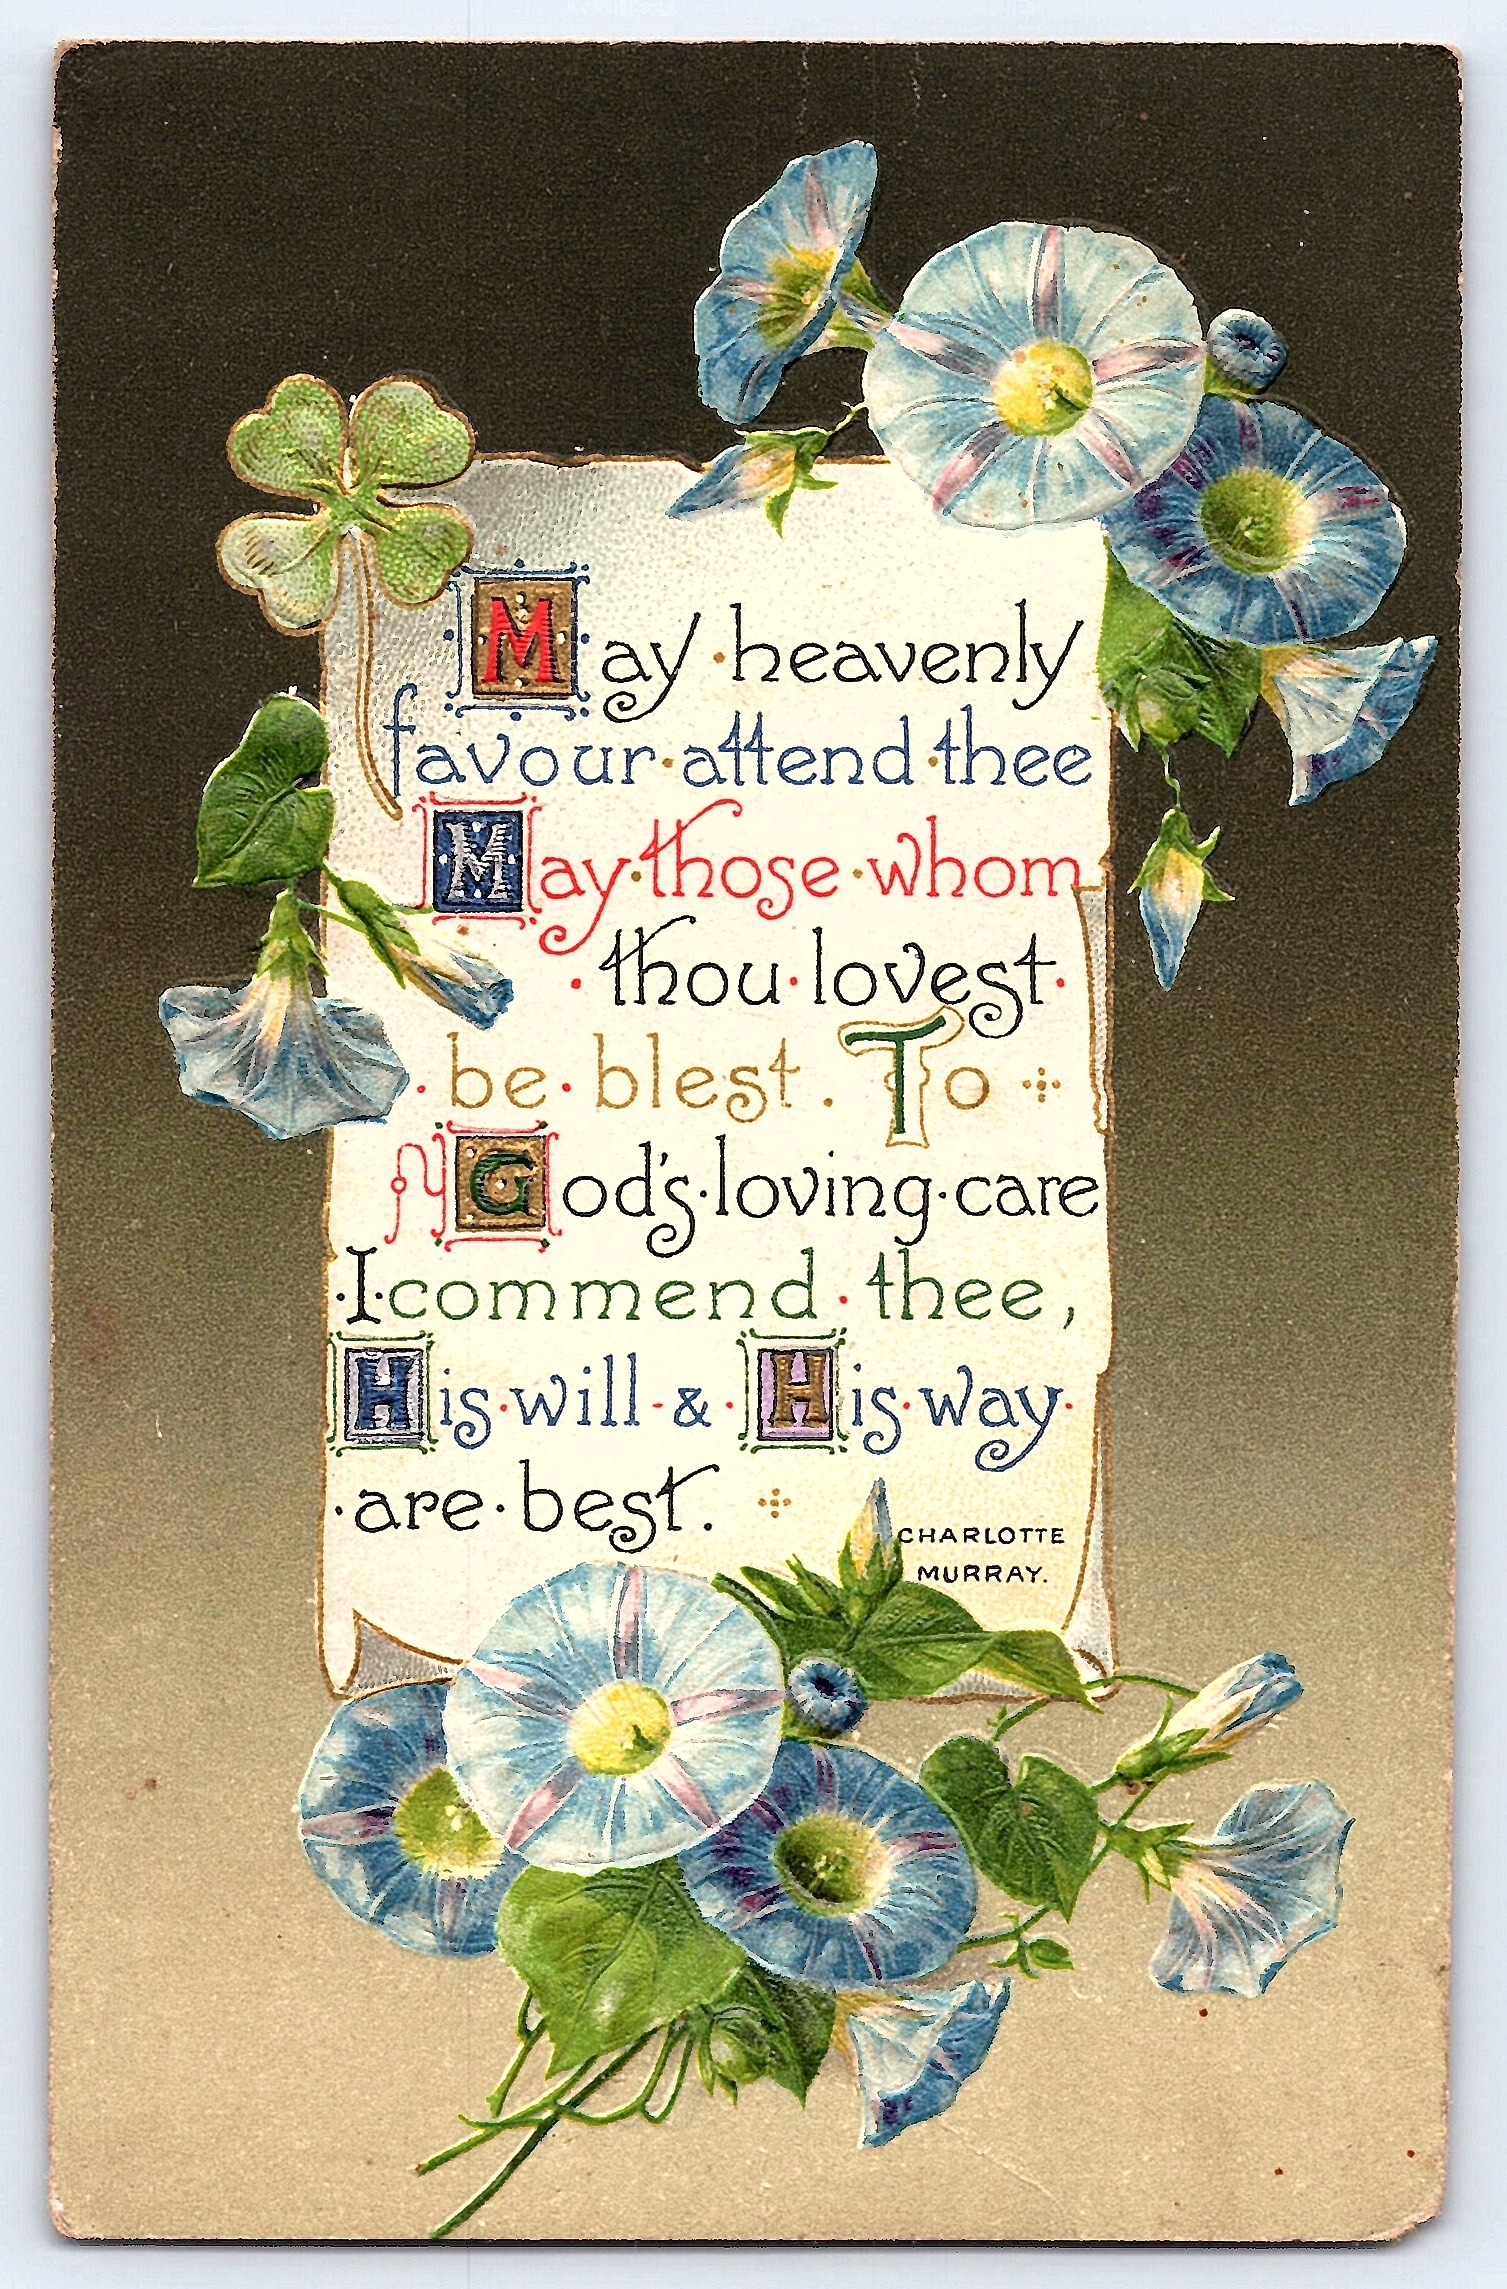 May heavenly
favour attend thee
May those whom
thou lovest
be blest. To
God's loving care
I commend thee,
His will & His way
are best.
CHARLOTTE
MURRAY.